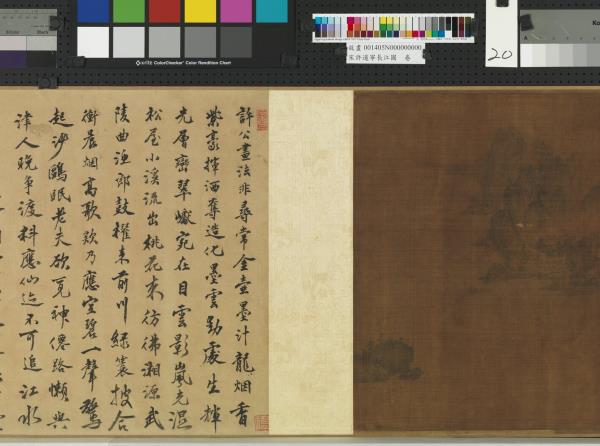 x·rite ColorChecker® Color Rendition Chart
故畫 001405N000000000
宋許道寧長江圖 卷
20
許公畫法非尋常金壺墨汁龍烟香
紫豪揮洒奪造化墨雲勁處生輝
光層巒翠巘宛在目雲影嵐光濕
松屋小溪流出桃花來彷彿湘源武
陵曲漁郎鼓櫂來前川綠蓑披合
衝晨烟高歌欸乃應空碧一聲驚
起沙鷗眠老夫欲覓神僊路懶與
津人晚爭渡料應仙迹不可追江水